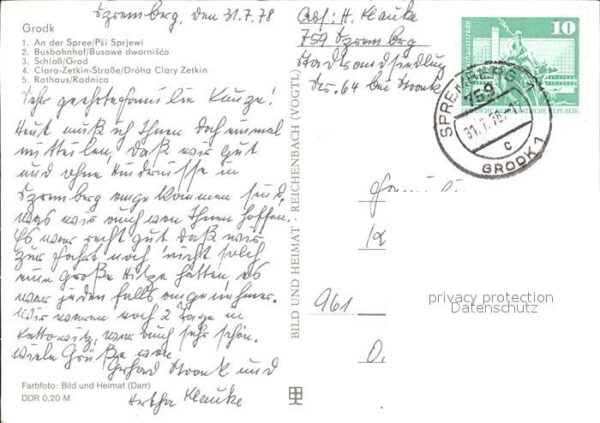 Spremberg, den 31.7.78
Grodk
1. An der Spree/Pśi Sprjewi
2. Busbahnhof/Busowe dwarnišćo
3. Schloß/Grod
4. Clara-Zetkin-Straße/Droha Clary Zetkin
5. Rathaus/Radnica
Sehr geehrte Familie Kunze!
Heut muß ich Ihnen doch einmal
mitteilen, daß wir gut
und ohne Hindernisse in
Spremberg angekommen sind,
was wir auch von Ihnen hoffen.
Es war recht gut daß wir
zur Fahrt noch nicht solch
eine große Hitze hatten es
war jeden falls angenehmer.
Wir waren noch 2 Tage in
Kattowitz, war auch sehr schön.
Viele Grüße von
Gerhard und
Hertha Klauke
Farbfoto: Bild und Heimat (Darr)
DDR 0,20 M
BILD UND HEIMAT · REICHENBACH (VOGTL)
Abs: H. Klauke
759 Spremberg
Stadtrandsiedlung
Str. 64 bei
10
SPREMBERG 1
759
31.7.78-17
c
GRODK 1
961
privacy protection
Datenschutz